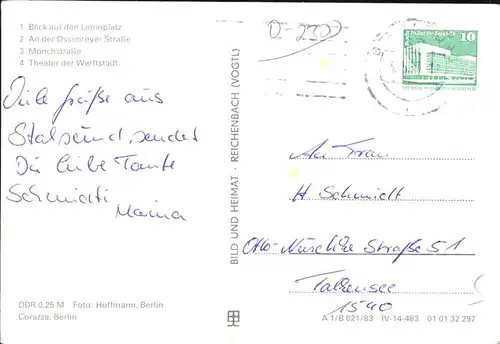 1 Blick auf den Leninplatz
2 An der Ossenreyer Straße
3 Mönchstraße
4 Theater der Werftstadt
Viele Grüße aus
Stalsund, sendet
Dir liebe Tante
Schmidti
Marina
DDR 0,25 M Foto: Hoffmann, Berlin
Corazza, Berlin
BILD UND HEIMAT · REICHENBACH (VOGTL)
0-230
10
An Frau
H. Schmidt
Otto-Nuschke Straße 51
Falkensee
1540
A 1/B 621/83 IV-14-483 01 01 32 297